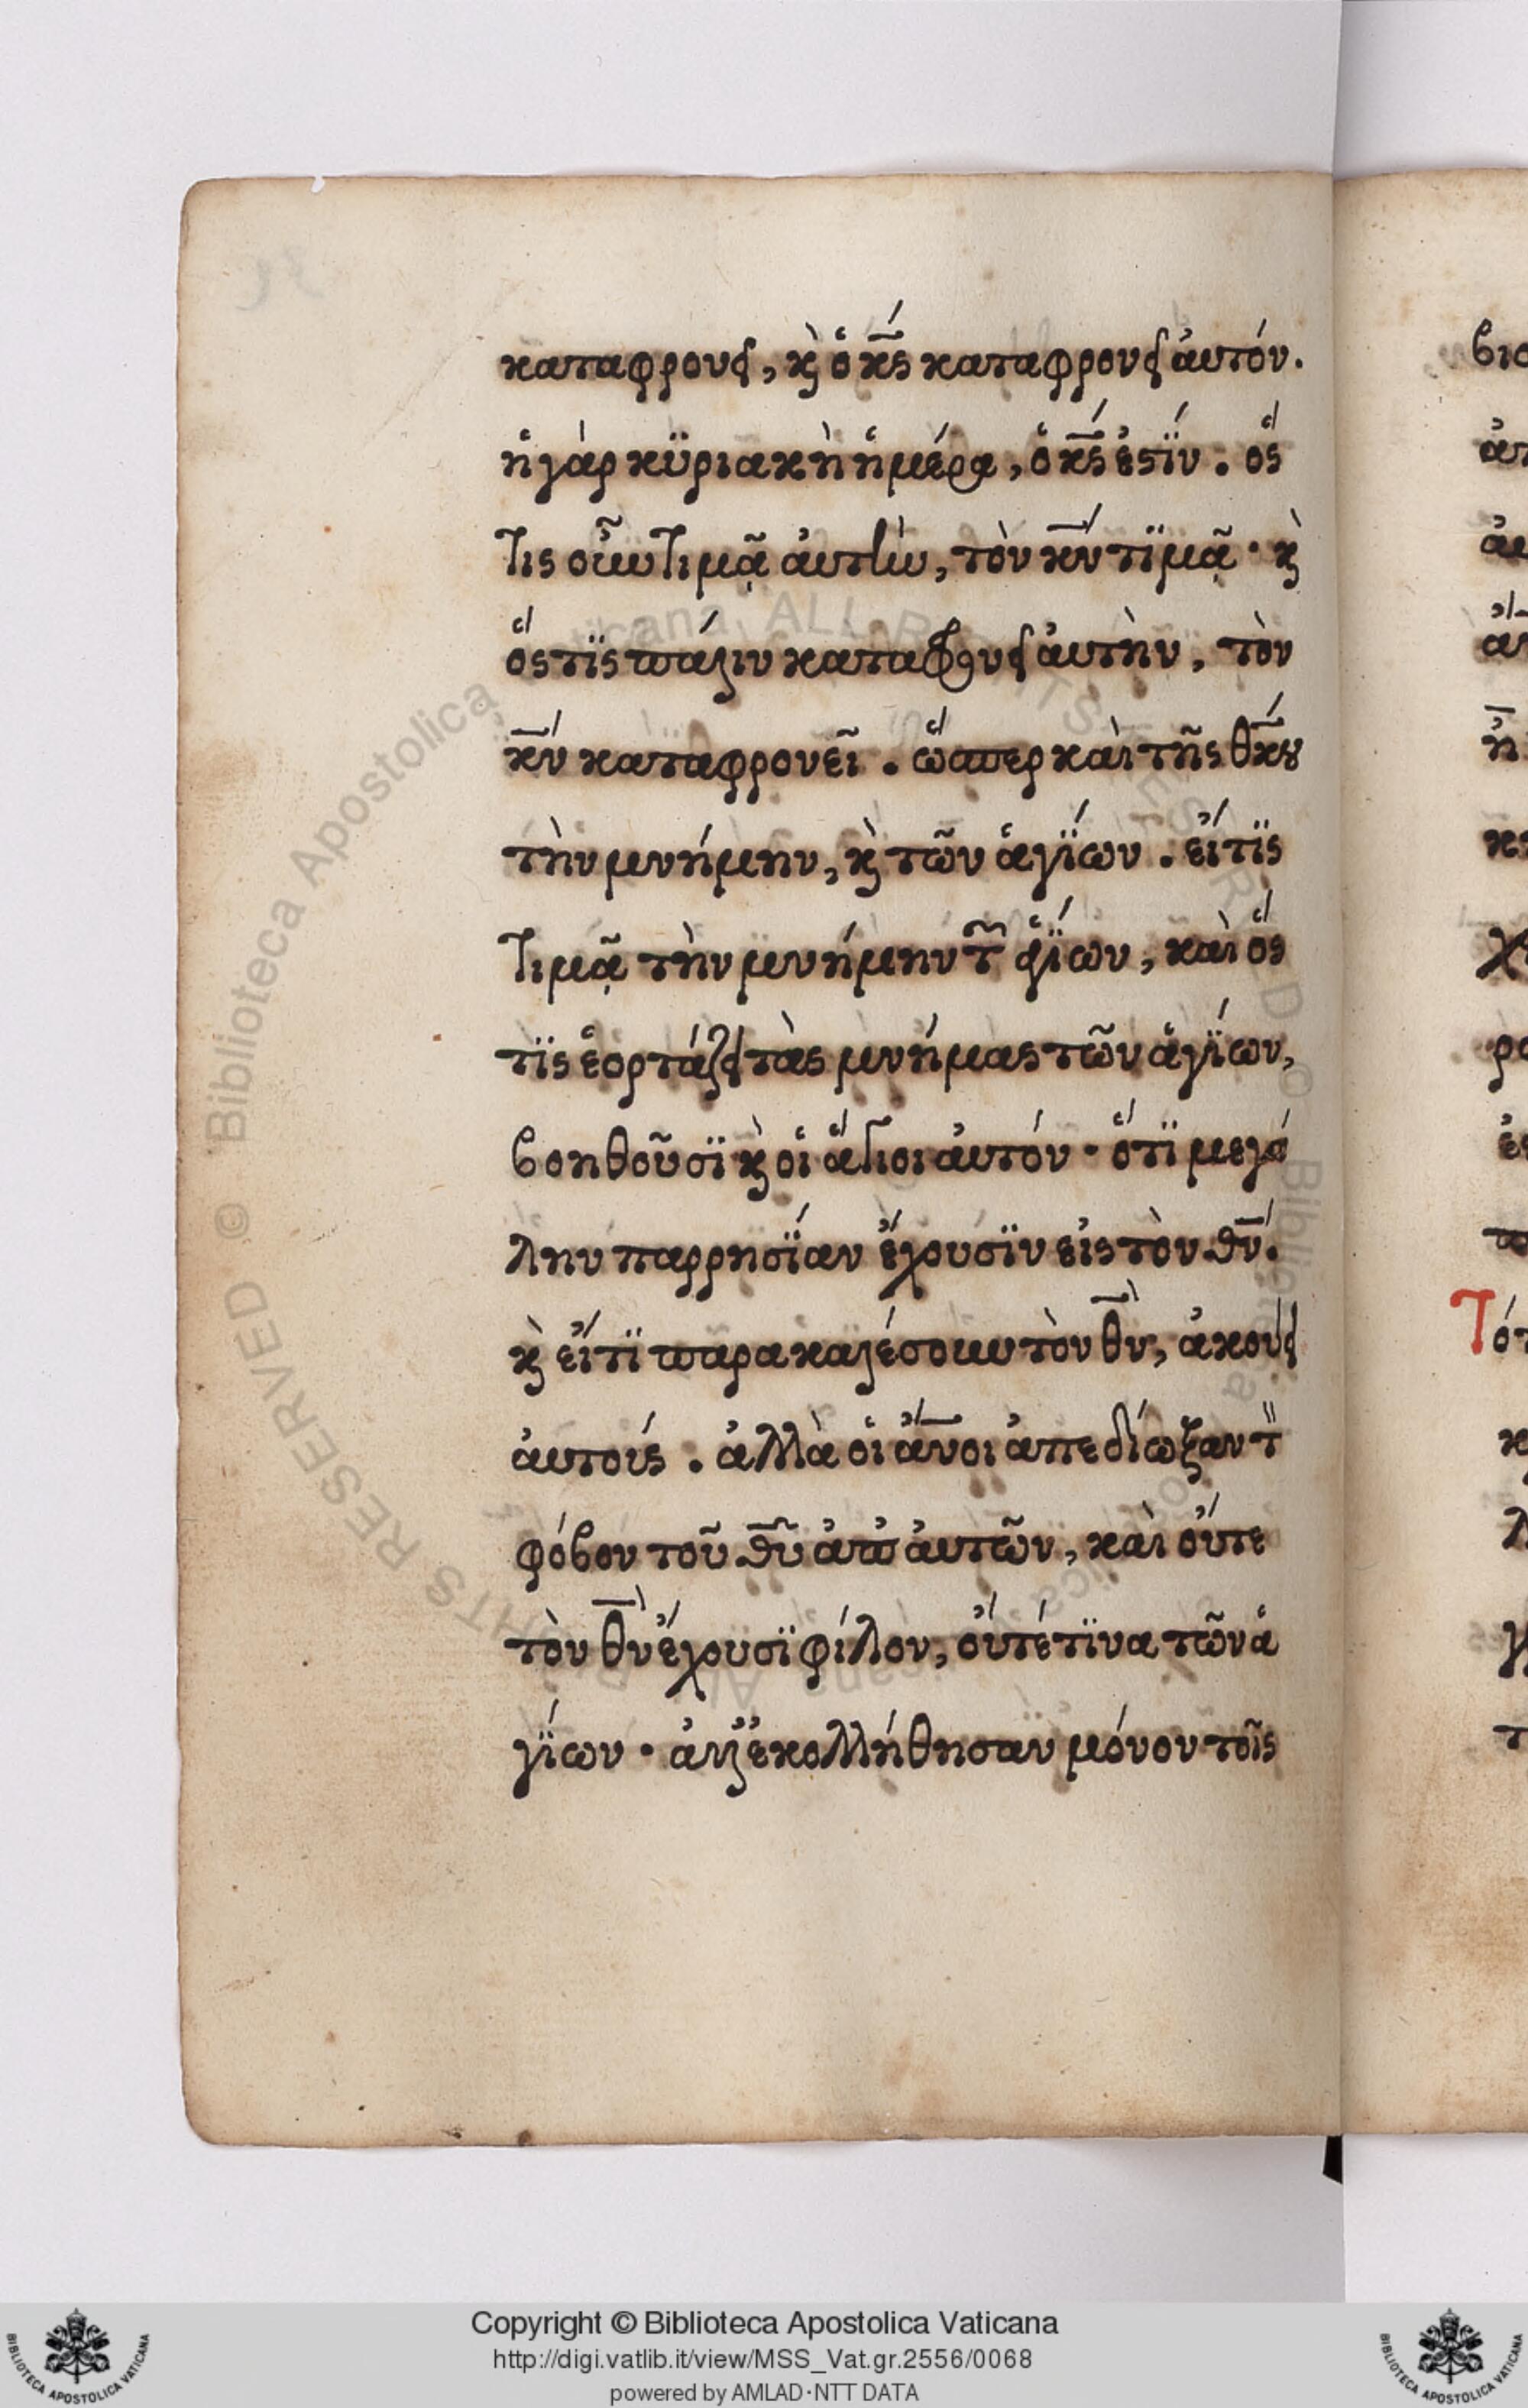 καταφρονεῖ, κ(αὶ) ὁ κ̅ς́ καταφρονεῖ ἀυτόν.
ἡ γὰρ κϋριακὴ ἡμέρα, ὁ κ̅ς́ ἐστΐν. ὅς
τις οὖν τιμᾷ ἀυτὴν, τὸν κ̅ν́ τϊμᾷ· κ(αὶ)
ὅστϊς πάλιν καταφρονεῖ ἀυτὴν, τὸν
κ̅ν́ καταφρονεῖ. ὥσπερ κὰι τῆς θ̅κ́ου
τὴν μνήμην, κ(αὶ) τῶν ἁγΐων. εἴτϊς
τιμᾷ τὴν μνήμην τῶν ἁγΐων, κὰι ὅς
τϊς ἑορτάζει τὰς μνήμας τῶν ἁγΐων,
βοηθοῦσϊ κ(αὶ) οἱ ἅγιοι ἀυτόν· ὅτϊ μεγά
λην παρρησΐαν ἔχουσϊν εἰς τὸν θ̅ν́.
κ(αὶ) εἴτϊ παρακαλέσουν τὸν θ̅ν̀, ἀκούει
ἀυτοίς. ἀλλὰ οἱ ἄ̅νοι ἀπεδίωξαν τὸν
φόβον τοῦ θ̅υ̃ ἀπὸ ἀυτῶν, κὰι οὔτε
τὸν θ̅ν̀ ἔχουσϊ φίλον, οὔτέ τϊνα τῶν ἁ
γΐων· ἀλλ' ἐκολλήθησαν μόνον τοῖς
Copyright © Biblioteca Apostolica Vaticana
http://digi.vatlib.it/view/MSS_Vat.gr.2556/0068
powered by AMLAD·NTT DATA